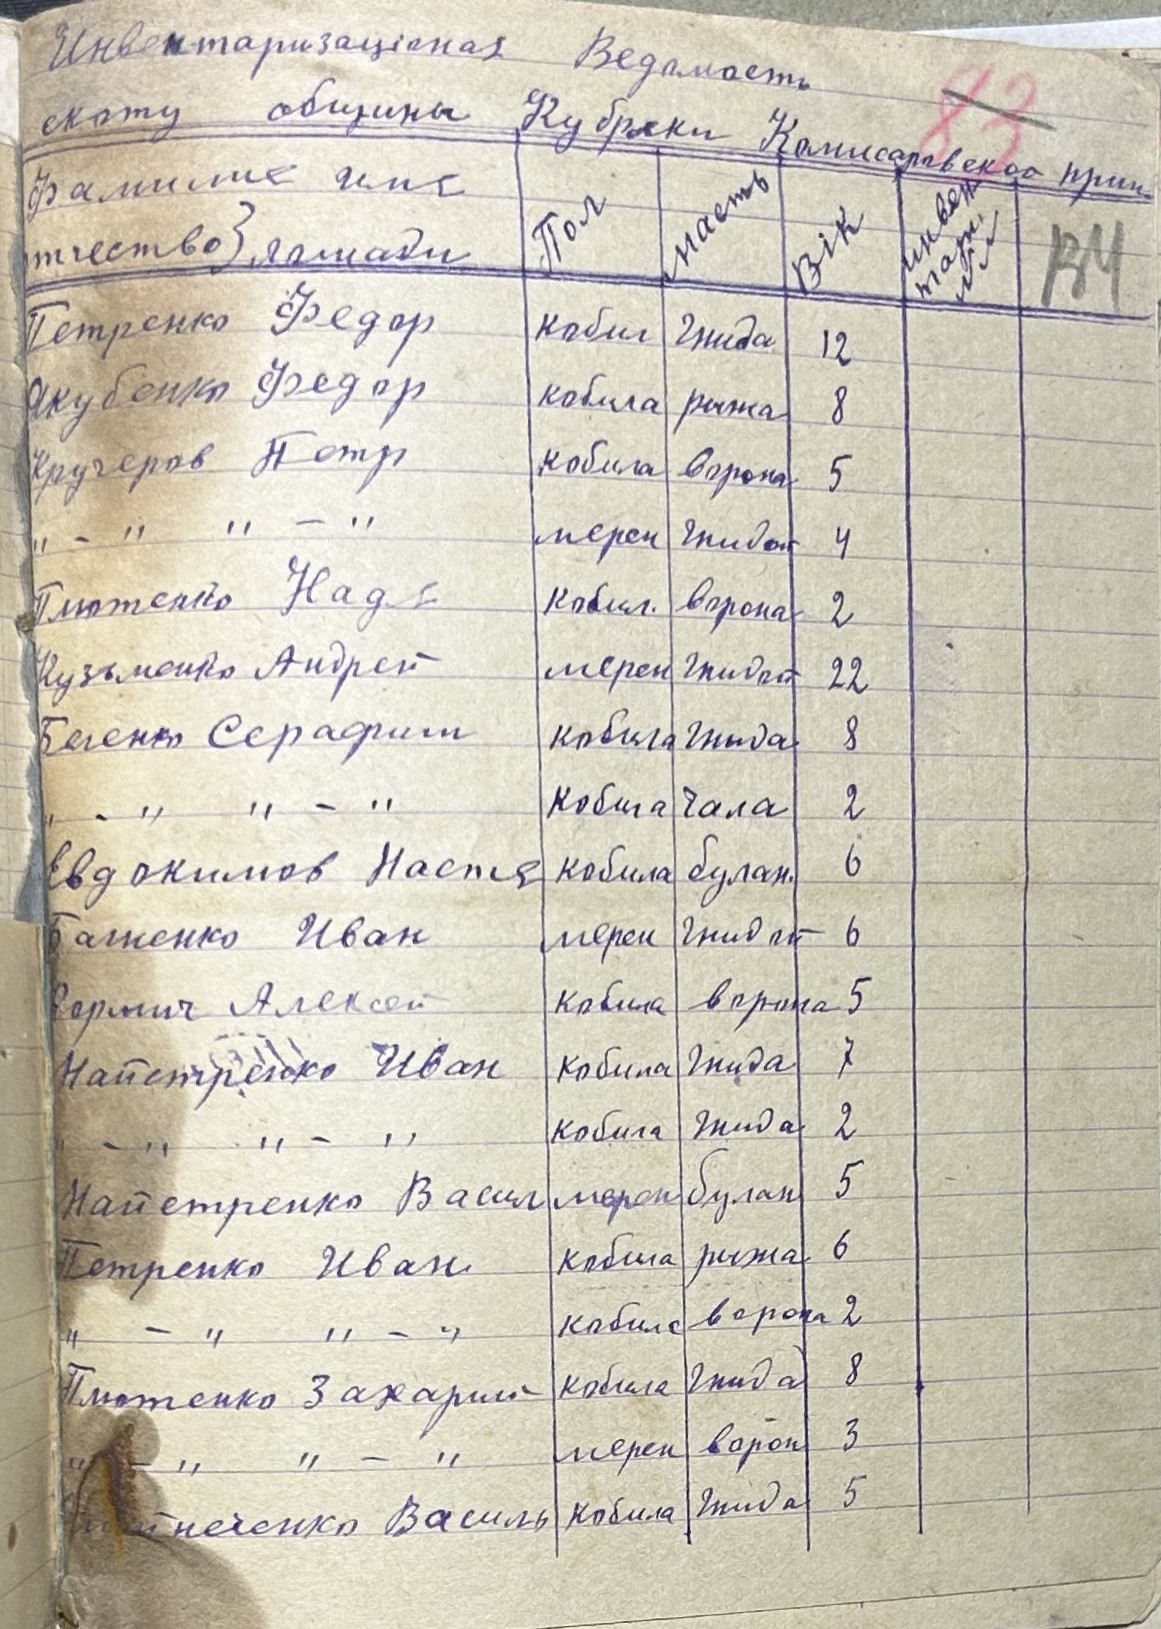 Инвентаризаціоная Ведомость
83
скоту общины Кубряки Комисаровской
Фамилия имя
отчество} лошади
Пол
масть
Вік
инвен
тарн
№
ВЧ
Петренко Федор кобил гнида 12
Якубенко Федор кобила рижа 8
Кручеров Петр кобила ворона 5
„ - „ „ - „ мерен гнидой 4
Плютенко Надя кобил. ворона 2
Кузьменко Андрей мерен гнидой 22
Беленко Серафим кобила гнида 8
„ - „ „ - „ кобила чала 2
Евдокимов Настя кобила булан. 6
Багненко Иван мерен гнидой 6
Алексей кобила ворона 5
Найпетренко Иван кобила гнида 7
„ - „ „ - „ кобила гнида 2
Найпетренко Васил мерен булан 5
Петренко Иван кобила рижа 6
„ - „ „ - „ кобила ворона 2
Плютенко Захарий кобила гнида 8
„ - „ „ - „ мерен ворон 3
Василь кобила гнида 5